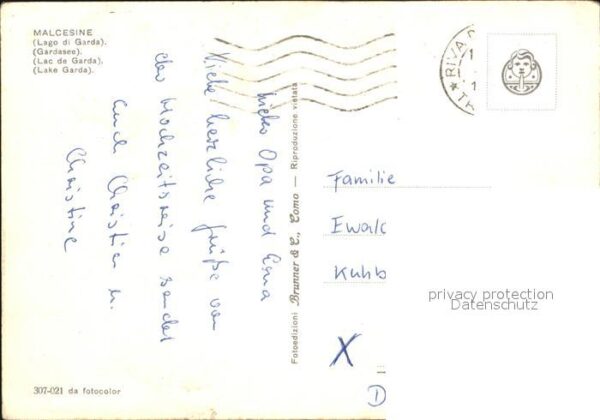 MALCESINE
(Lago di Garda).
(Gardasee).
(Lac de Garda).
(Lake Garda).
RIVA D
Lieber Opa und Oma
Viele herzliche Grüße von
der Hochzeitsreise sendet
euch Christian u.
Christine
Fotoedizioni Brunner & C., Como — Riproduzione vietata
Familie
Ewald
Kuhb
X
D
privacy protection
Datenschutz
307-021 da fotocolor